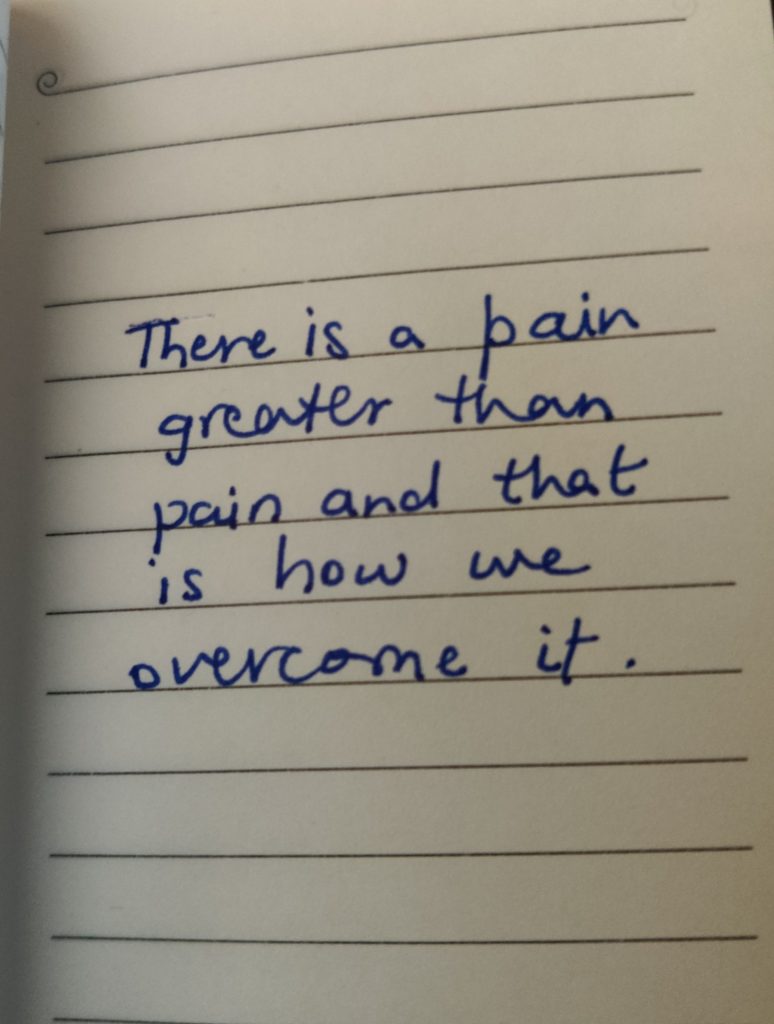 There is a pain
greater than
pain and that
is how we
overcome it.